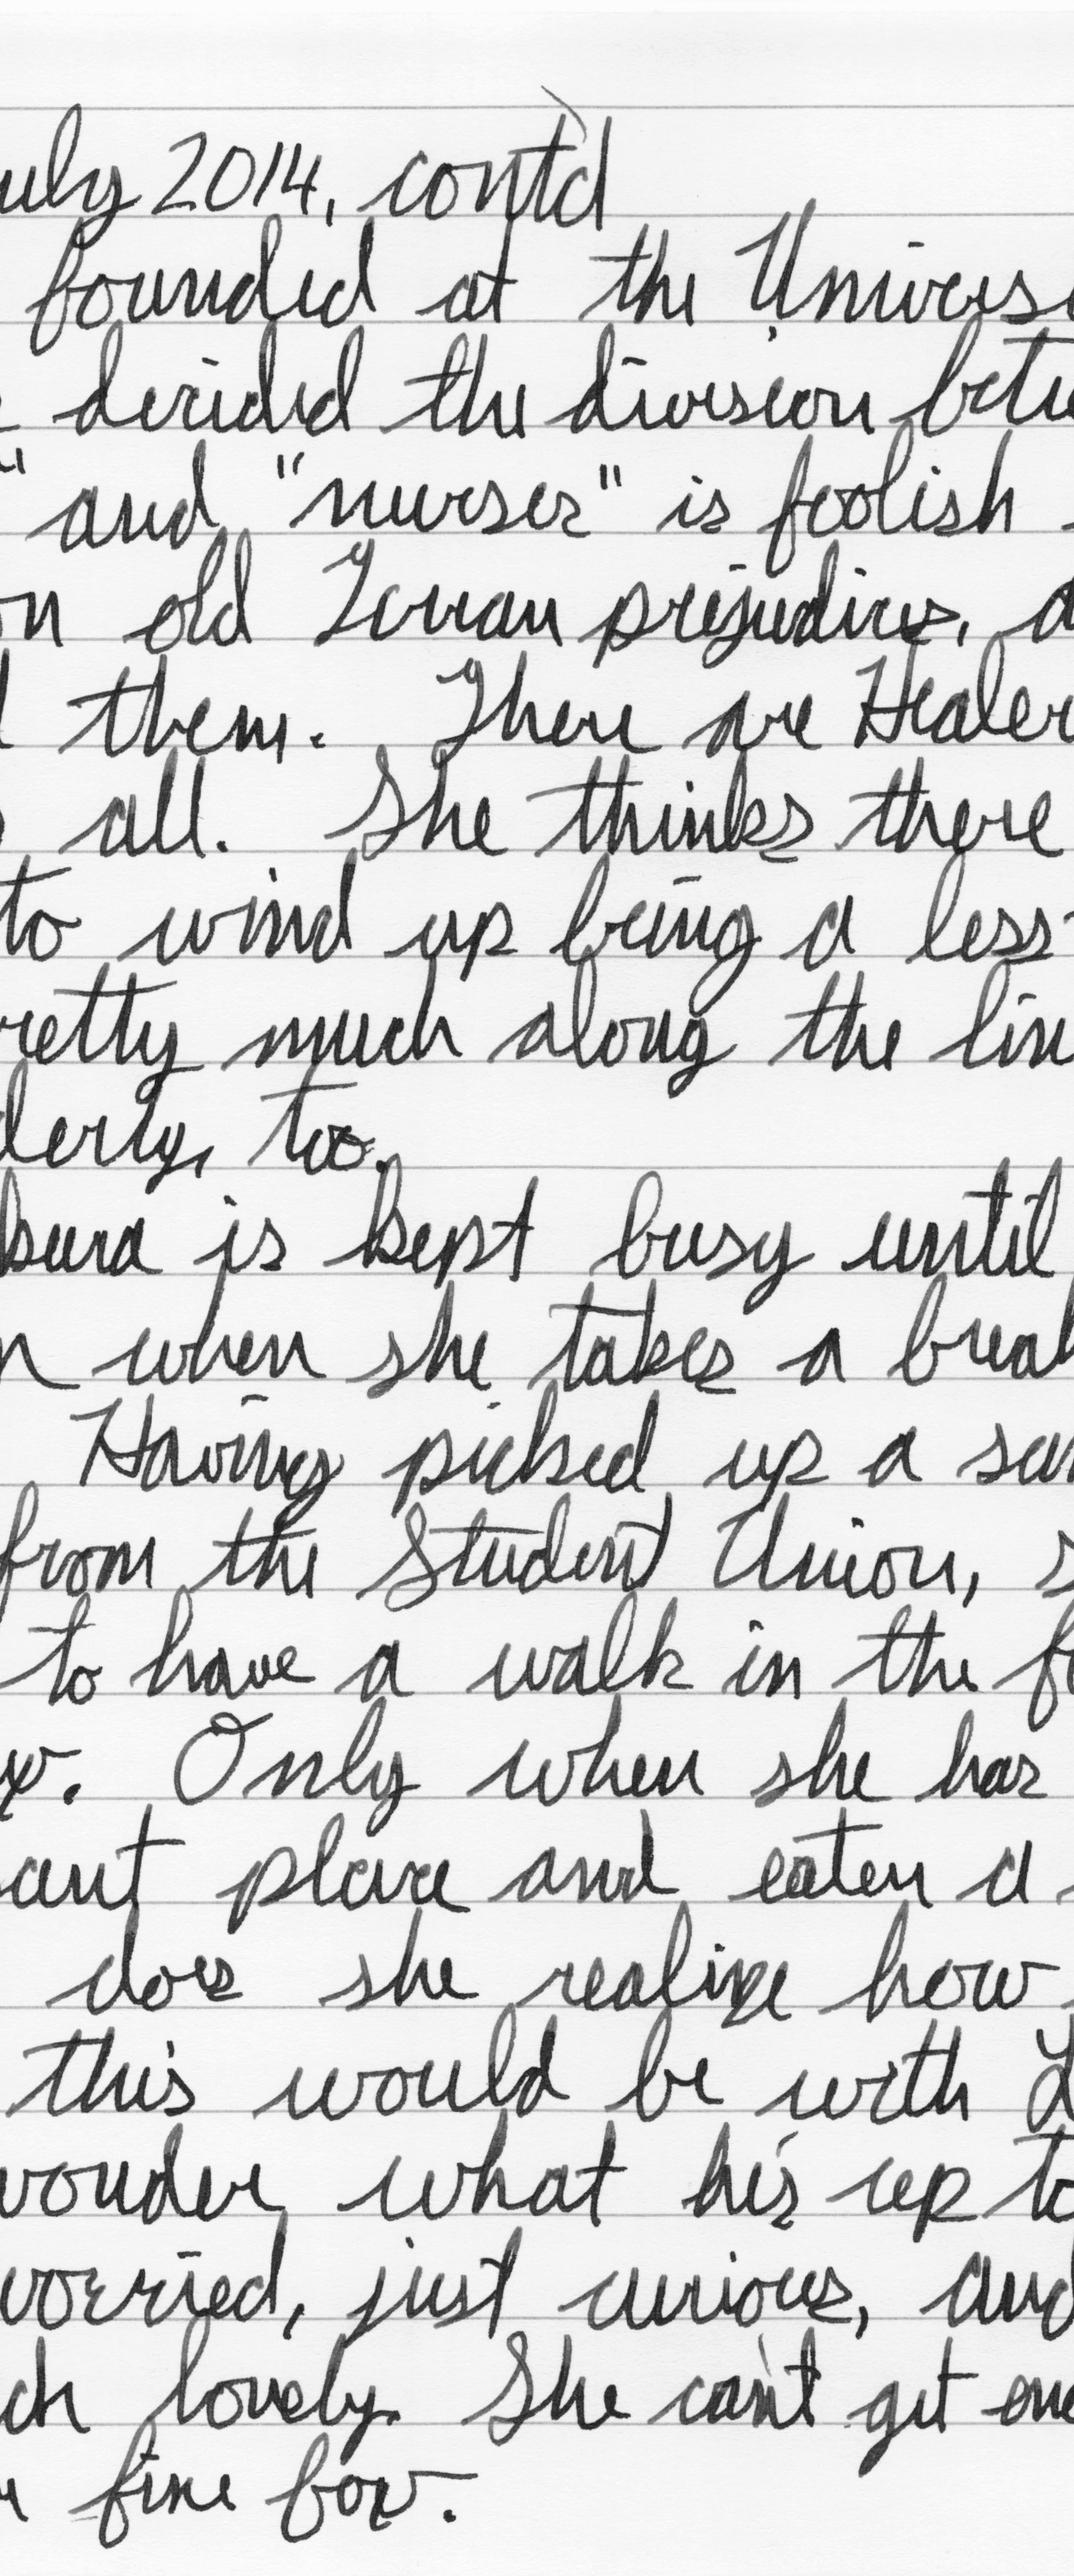 uly 2014, cont'd
founded at the Univers
derided the division betw
" and "nurses" is foolish
on old Terran prejudices, a
them. There are Healer
all. She thinks there
to wind up being a less
retty much along the line
derly, too.
kura is kept busy until
n when she takes a break
Having picked up a san
from the Student Union, s
to have a walk in the fo
w. Only when she has
sant place and eaten a
does she realize how
this would be with L
wonder what he's up to
worried, just curious, and
ch lovely. She can't get eno
fine fox.